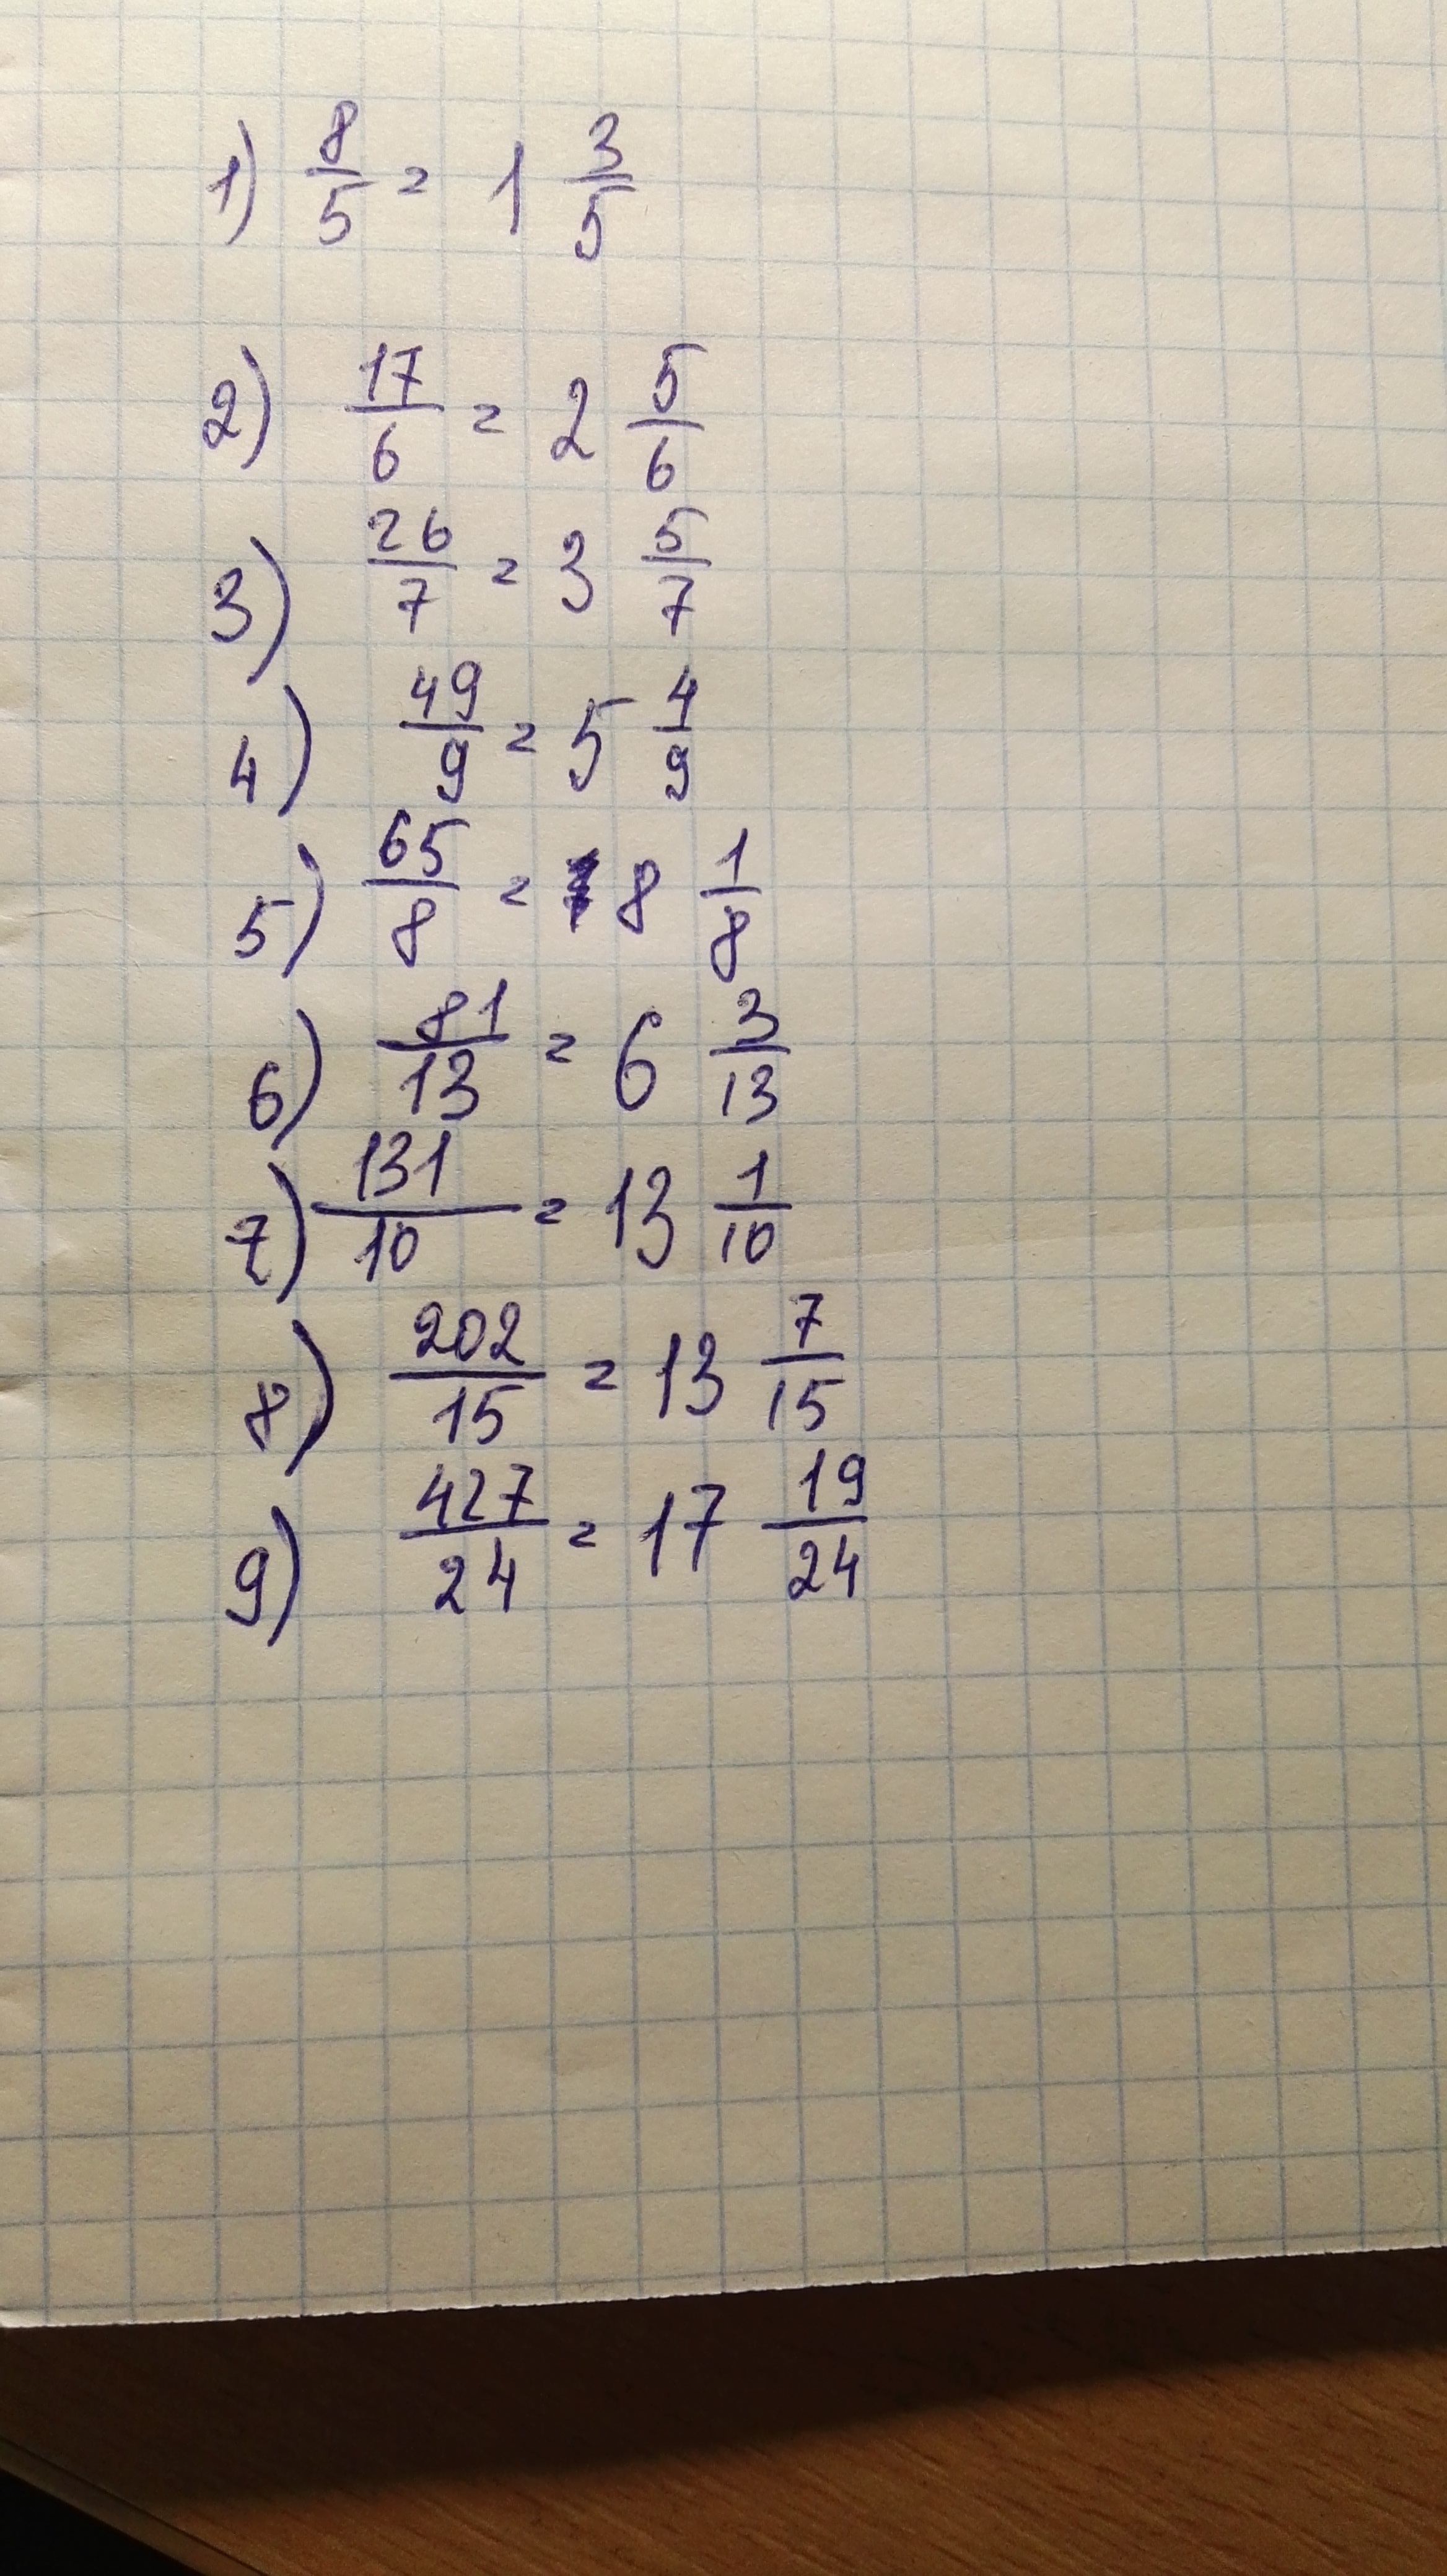 1) 8/5 = 1 3/5
2) 17/6 = 2 5/6
3) 26/7 = 3 5/7
4) 49/9 = 5 4/9
5) 65/8 = 8 1/8
6) 81/13 = 6 3/13
7) 131/10 = 13 1/10
8) 202/15 = 13 7/15
9) 427/24 = 17 19/24